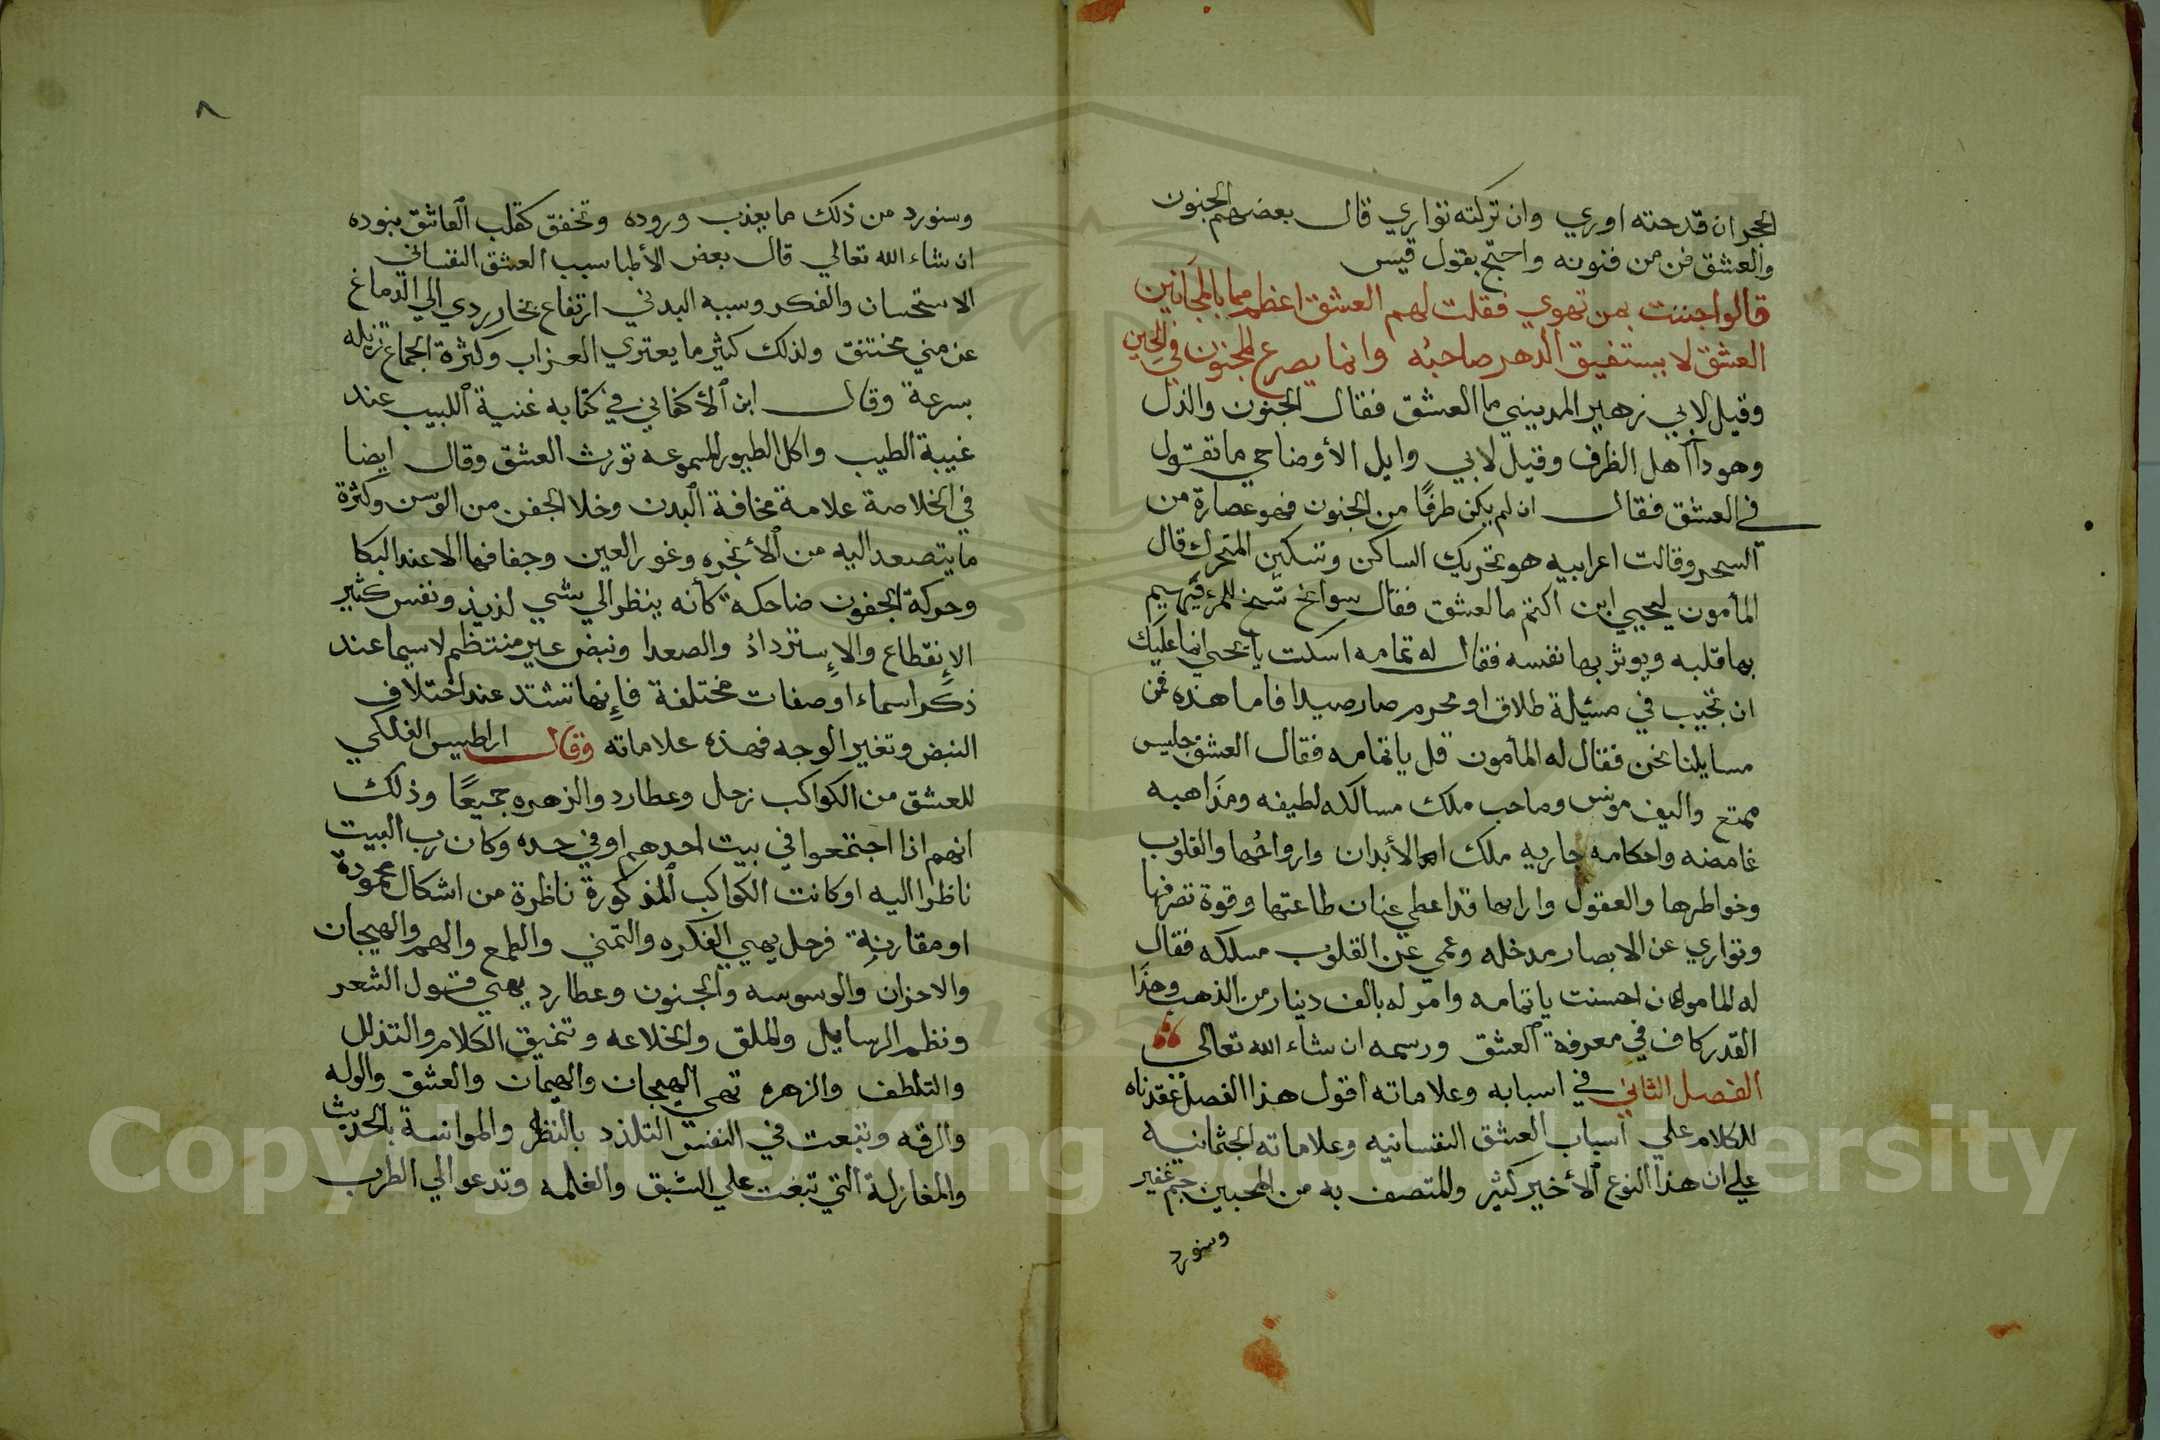 الحجر ان قدحته اوري وان تركته تواري قال بعضهم الجنون
والعشق فن من فنونه واحتج بقول قيس
قالوا جننت بمن تهوي فقلت لهم العشق اعظم مما بالمجانين
العشق لا يستفيق الدهر صاحبه وانما يصرع المجنون في الحين
وقيل لابي زهير المديني ما العشق فقال الجنون والذل
وهو داآ اهل الظرف وقيل لابي وايل الأوضاحي ما تقول
في العشق فقال ان لم يكن طرفًا من الجنون فهو عصارة من
السحر وقالت اعرابيه هو تحريك الساكن وتسكين المتحرك قال
المأمون ليحيي ابن اكتم ما لعشق فقال سوانح تسنح للمرء فيهيم
بها قلبه ويوثر بها نفسه فقال له تمامه اسكت يا يحيي انما عليك
ان تجيب في مسئيلة طلاق او محرم صار صيدا فاما هذه فمن
مسايلنا نحن فقال له المأمون قل يا تمامه فقال العشق جليس
ممتع واليف مونس وصاحب ملك مسالكه لطيفه ومذاهبه
غامضه واحكامه جاريه ملك الأبدان وارواحها والقلوب
وخواطرها والعقول واراها قد اعطي عنان طاعتها وقوة تصرفها
وتواري عن الابصار مدخله وعمي عن القلوب مسلكه فقال
له المامون احسنت يا تمامه وامر له بالف دينار من الذهب وهذا
القدر كاف في معرفة العشق ورسمه ان شاء الله تعالي
الفصل الثاني في اسبابه وعلاماته اقول هذا الفصل عقدناه
للكلام علي أسباب العشق النفسانيه وعلاماته الجثمانيه
علي ان هذا النوع الأخير كثير والمتصف به من المحبين جم غفير
وسنورد
٨
وسنورد من ذلك ما يعذب وروده وتخفق كقلب العاشق بنوده
ان شاء الله تعالي قال بعض الأطبا سبب العشق النفساني
الاستحسان والفكر وسببه البدني ارتفاع بخار ردي الي الدماغ
عن مني مختنق ولذلك كثير ما يعتري العزاب وكثرة الجماع تزيله
بسرعة وقال ابن الأكفاني في كتابه غنية اللبيب عند
غيبة الطبيب واكل الطيور المسموعه تورث العشق وقال ايضا
في الخلاصة علامة نحافة البدن وخلا الجفن من الوسن وكثرة
ما يتصعد اليه من الأبخره وغور العين وجفافها الا عند البكا
وحركة الجفون ضاحكة كأنه ينظر الي شي لذيذ ونفس كثير
الإنقطاع والإستزداد والصعدا ونبض غير منتظم لا سيما عند
ذكر اسماء او صفات مختلفة فإنها تشتد عند اختلاف
النبض وتغير الوجه فهذه علاماته وقال اراطيس الفلكي
للعشق من الكواكب زحل وعطارد والزهره جميعًا وذلك
انهم اذا اجتمعوا في بيت احدهم او في حده وكان رب البيت
ناظرا اليه او كانت الكواكب المذكورة ناظرة من اشكال محمودة
او مقارنة فزحل يهيي الفكره والتمني والطمع والهم والهيجان
والاحزان والوسوسه والجنون وعطارد يهيي قول الشعر
ونظم الرسايل والملق والخلاعه وتنميق الكلام والتذلل
والتلطف والزهره تهيي الهيجان والهيمان والعشق والوله
والرقه وتبعث في النفس التلذذ بالنظر والموانسة بالحديث
والمغازلة التي تبعث علي الشبق والغلمه وتدعو الي الطرب
Copyright © King Saud University